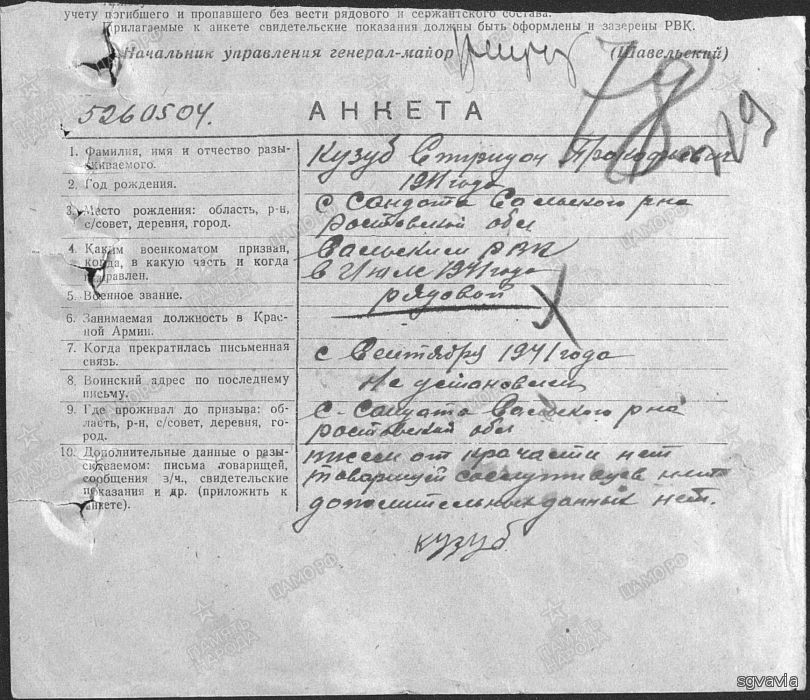 учету погибшего и пропавшего без вести рядового и сержантского состава.
Прилагаемые к анкете свидетельские показания должны быть оформлены и заверены РВК.
Начальник управления генерал-майор (Шавельский)
78
5260504.
АНКЕТА
1. Фамилия, имя и отчество разы-
скиваемого.
Кузуб Спиридон Прокофьевич
2. Год рождения.
1911 года
3. Место рождения: область, р-н,
с/совет, деревня, город.
с Сандата Сальского р-на
Ростовской обл
4. Каким военкоматом призван,
когда, в какую часть и когда
направлен.
Сальским РВК
в Июле 1941 года
5. Военное звание.
рядовой
6. Занимаемая должность в Крас-
ной Армии.
7. Когда прекратилась письменная
связь.
с Сентября 1941 года
8. Воинский адрес по последнему
письму.
Не установлен
9. Где проживал до призыва: об-
ласть, р-н, с/совет, деревня, го-
род.
с. Сандата Сальского р-на
Ростовской обл
10. Дополнительные данные о разы-
скиваемом: письма товарищей,
сообщения з/ч., свидетельские
показания и др. (приложить к
анкете).
писем от части нет
товарищей сослуживцев нет
дополнительных данных нет.
Кузуб
ЦАМО.РФ
ПАМЯТЬ
НАРОДА
sgvavia